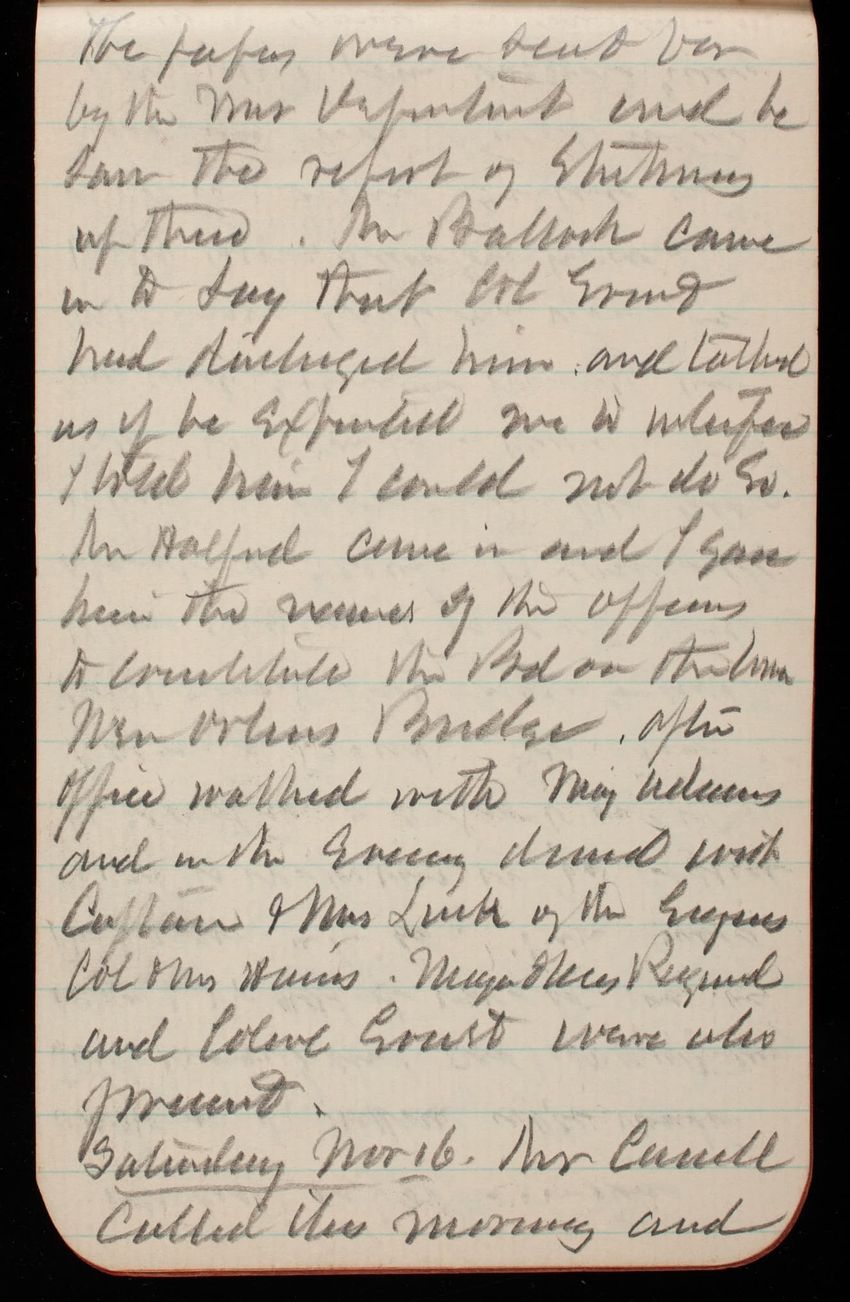 The papers were sent
by the War Department and he
saw the report of
up there. Mr Ballock came
in to say that Col Ernst
had discharged him. and talked
as if he expected me to interfere
I told him I could not do so.
Mr Halford came in and I gave
him the names of the officers
to constitute the Bd on the
New Orleans Bridge. after
office walked with Maj Adams
and in the Evening dined with
Captain & Mrs Lusk of the Engrs
Col & Mrs Hains. Major & Mrs Raymond
and Colonel Ernst were also
present.
Saturday Nov 16. Mr
Called this morning and